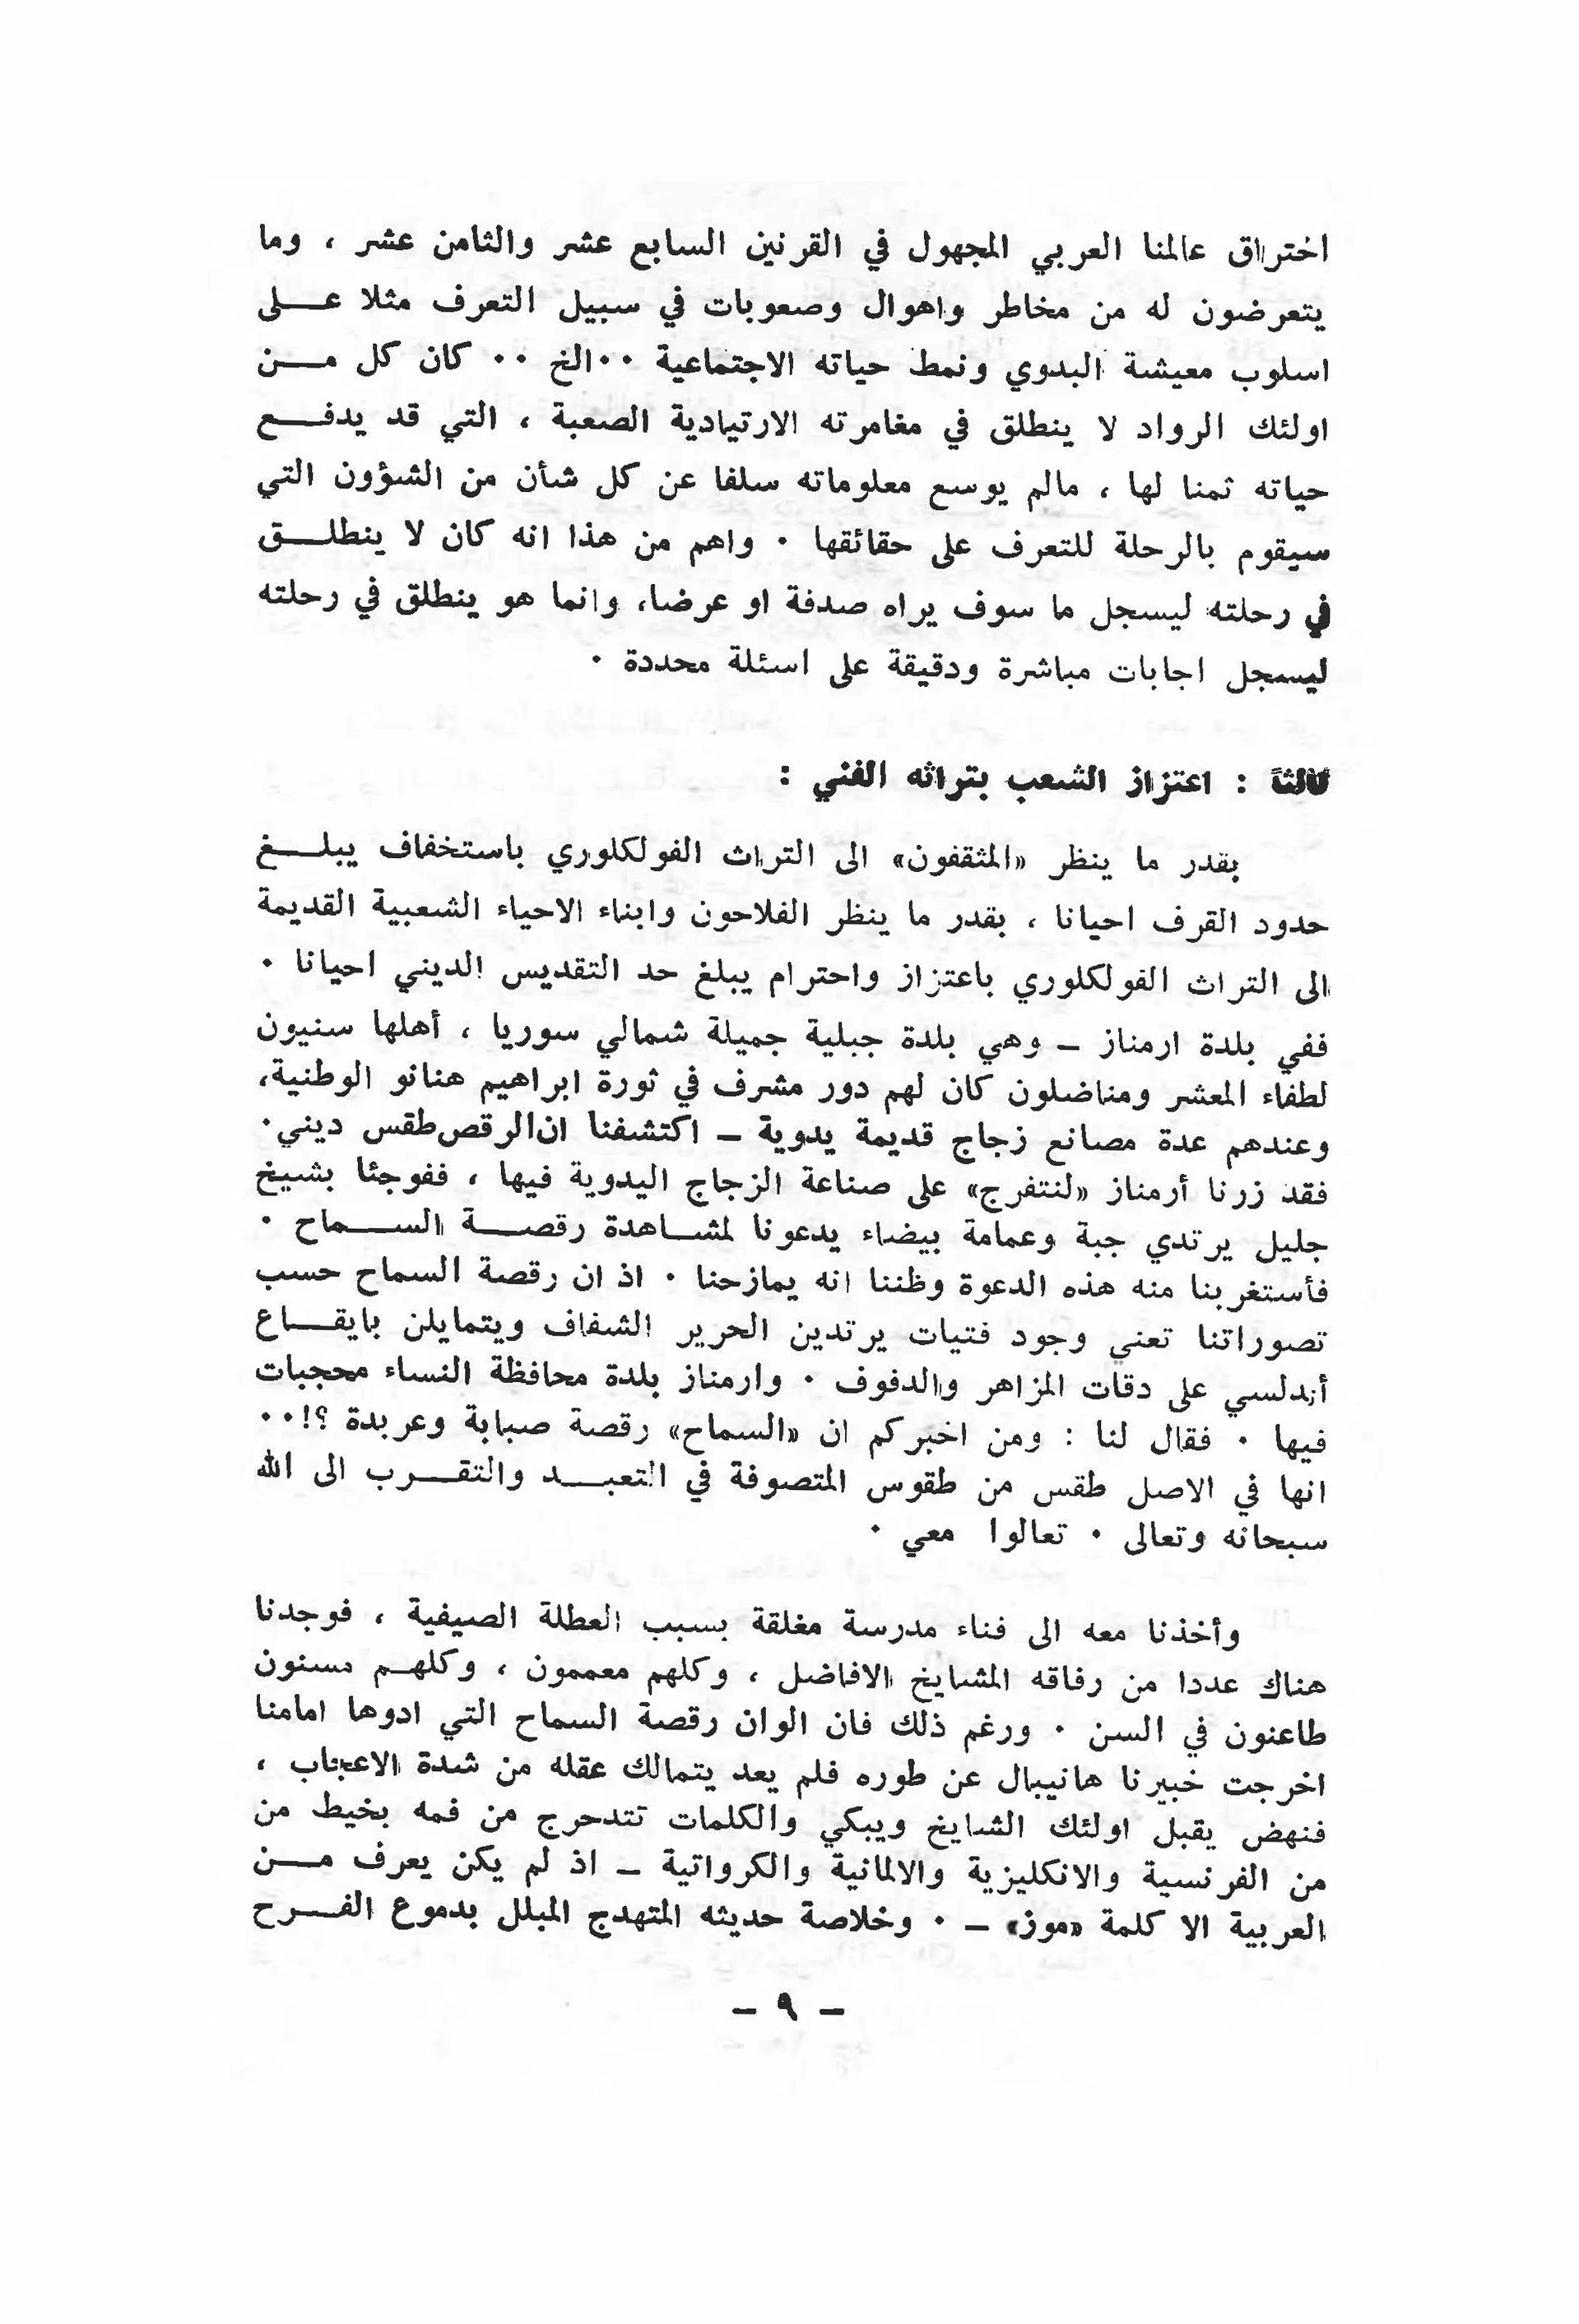 اختراق عالمنا العربي المجهول في القرنين السابع عشر والثامن عشر ، وما
يتعرضون له من مخاطر واهوال وصعوبات في سبيل التعرف مثلا عــلى
اسلوب معيشة البدوي ونمط حياته الاجتماعية ٠٠الخ ٠٠ كان كل مــن
اولئك الرواد لا ينطلق في مغامرته الارتيادية الصعبة ، التي قد يدفــع
حياته ثمنا لها ، مالم يوسع معلوماته سلفا عن كل شأن من الشؤون التي
سيقوم بالرحلة للتعرف على حقائقها ٠ واهم من هذا انه كان لا ينطلــق
في رحلته ليسجل ما سوف يراه صدفة او عرضا، وانما هو ينطلق في رحلته
ليسجل اجابات مباشرة ودقيقة على اسئلة محددة ٠
ثالثاً : اعتزاز الشعب بتراثه الفني :
بقدر ما ينظر «المثقفون» الى التراث الفولكلوري باستخفاف يبلــغ
حدود القرف احيانا ، بقدر ما ينظر الفلاحون وابناء الاحياء الشعبية القديمة
الى التراث الفولكلوري باعتزاز واحترام يبلغ حد التقديس الديني احيانا ٠
ففي بلدة ارمناز ــ وهي بلدة جبلية جميلة شمالي سوريا ، أهلها سنيون
لطفاء المعشر ومناضلون كان لهم دور مشرف في ثورة ابراهيم هنانو الوطنية،
وعندهم عدة مصانع زجاج قديمة يدوية ــ اكتشفنا ان الرقص طقس ديني٠
فقد زرنا أرمناز «لنتفرج» على صناعة الزجاج اليدوية فيها ، ففوجئا بشيخ
جليل يرتدي جبة وعمامة بيضاء يدعونا لمشــاهدة رقصــة الســماح ٠
فأستغربنا منه هذه الدعوة وظننا انه يمازحنا ٠ اذ ان رقصة السماح حسب
تصوراتنا تعني وجود فتيات يرتدين الحرير الشفاف ويتمايلن بايقــاع
أندلسي على دقات المزاهر والدفوف ٠ وارمناز بلدة محافظة النساء محجبات
فيها ٠ فقال لنا : ومن اخبركم ان «السماح» رقصة صبابة وعربدة ؟!٠٠
انها في الاصل طقس من طقوس المتصوفة في التعبــد والتقــرب الى الله
سبحانه وتعالى ٠ تعالوا معي ٠
وأخذنا معه الى فناء مدرسة مغلقة بسبب العطلة الصيفية ، فوجدنا
هناك عددا من رفاقه المشايخ الافاضل ، وكلهم معممون ، وكلهــم مسنون
طاعنون في السن ٠ ورغم ذلك فان الوان رقصة السماح التي ادوها امامنا
اخرجت خبيرنا هانيبال عن طوره فلم يعد يتمالك عقله من شدة الاعجاب ،
فنهض يقبل اولئك الشايخ ويبكي والكلمات تتدحرج من فمه بخيط من
من الفرنسية والانكليزية والالمانية والكرواتية ــ اذ لم يكن يعرف مــن
العربية الا كلمة «موز» ــ ٠ وخلاصة حديثه المتهدج المبلل بدموع الفــرح
ــ ٩ ــ